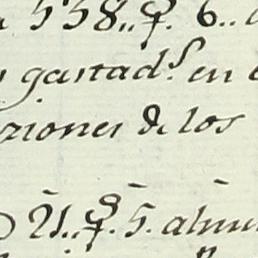 558,, f. 6..
gastad.s en
ziones de los
21,, f.s 5. almu